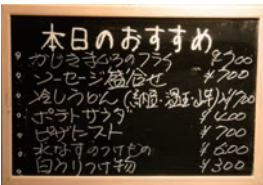 本日のおすすめ
かじきまぐろのフライ ¥700
ソーセージ盛合せ ¥700
冷しうどん(納豆・温玉・山芋)¥700
ポテトサラダ ¥400
ピザトースト ¥700
水なすのつけもの ¥600
白うりつけ物 ¥300